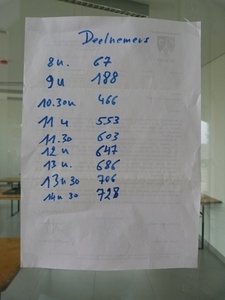 Deelnemers
8u. 67
9u 188
10.30u 466
11u 553
11.30 603
12u 647
13u. 686
13u30 706
14u30 728